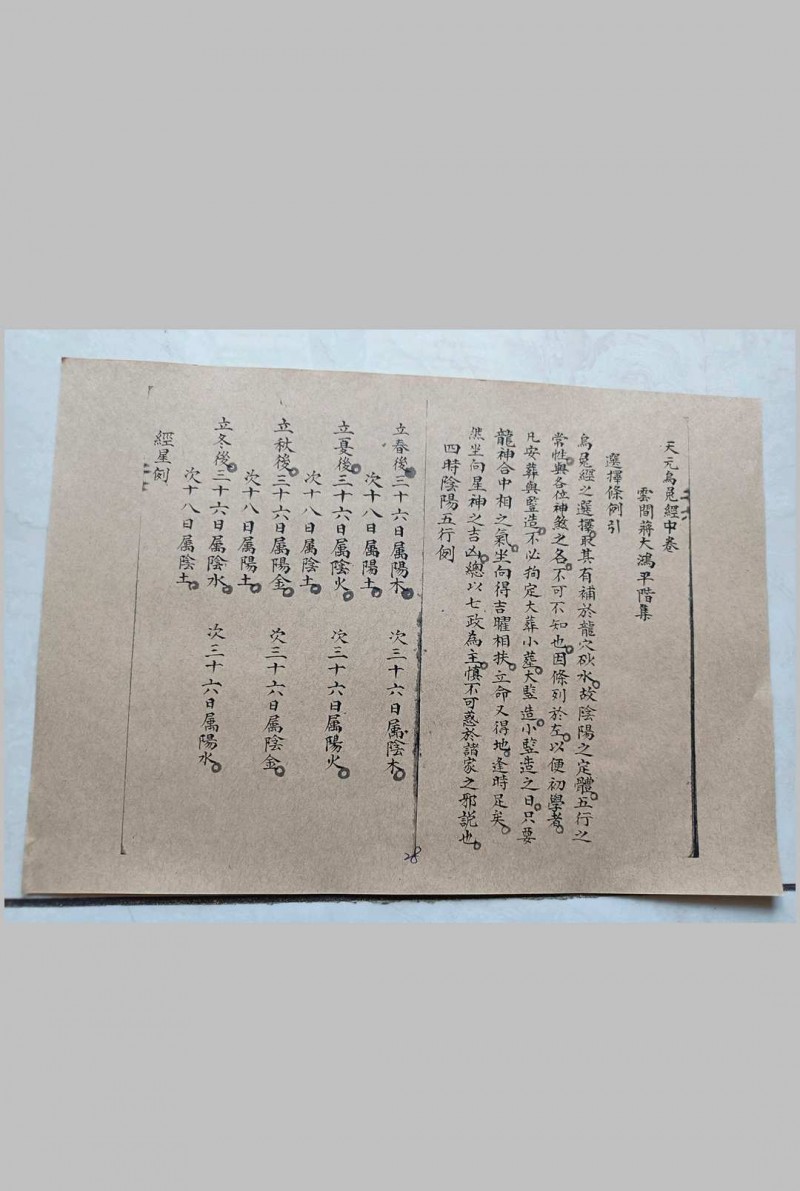 天元烏兔經中卷
雲間蔣大鴻平階集
選擇條例引
烏兔經之選擇。取其有補於龍穴砂水。故陰陽之定體。五行之
常性。與各位神煞之名。不可不知也。因條列於左。以便初學者。
凡安葬與豎造。不必拘定大葬小葬。大豎造。小豎造之日。只要
龍神合中相之氣。坐向得吉曜相扶。立命又得地。逢時足矣。
然坐向星神之吉凶。總以七政為主。慎不可惑於諸家之邪說也。
四時陰陽五行例
立春後。三十六日属陽木。 次三十六日属陰木。
次十八日属陽土。
立夏後。三十六日属陰火。 次三十六日属陽火。
次十八日属陰土。
立秋後。三十六日属陽金。 次三十六日属陰金。
次十八日属陽土。
立冬後。三十六日属陰水。 次三十六日属陽水。
次十八日属陰土。
經星例
28